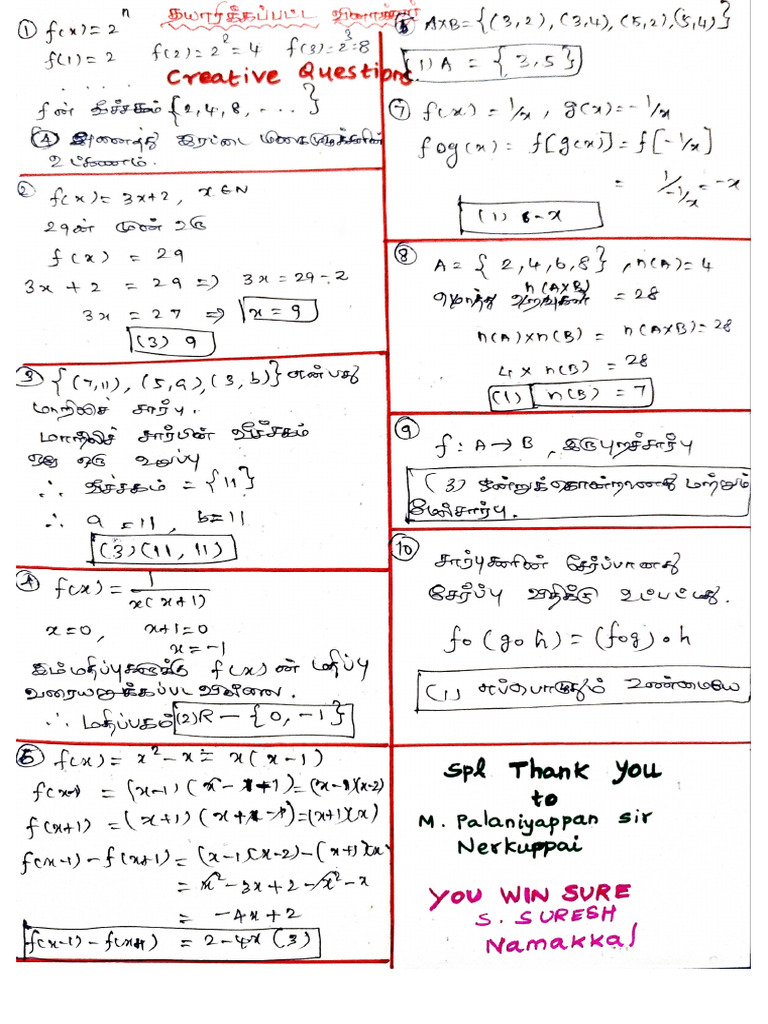 தயாரிக்கப்பட்ட வினாக்கள்
Creative Questions
① f(x) = 2ⁿ
f(1) = 2 f(2) = 2² = 4 f(3) = 2³ = 8
. . . . .
f ன் வீச்சகம் {2, 4, 8, . . . }
(4) அனைத்து இரட்டை மிகை முழுக்களின்
உட்கணம்.
② f(x) = 3x+2, x∈N
29ன் முன் உரு
f(x) = 29
3x + 2 = 29 ⇒ 3x = 29-2
3x = 27 ⇒ x = 9
(3) 9
③ {(7,11), (5,a), (3,b)} என்பது
மாறிலிச் சார்பு.
மாறிலிச் சார்பின் வீச்சகம்
ஒரு உறுப்பு
∴ வீச்சகம் = {11}
∴ a = 11, b = 11
(3) (11, 11)
④ f(x) = 1/x(x+1)
x=0, x+1=0
x=-1
இம்மதிப்புகளுக்கு f(x) ன் மதிப்பு
வரையறுக்கப்படவில்லை.
∴ மதிப்பகம் (2) R - {0, -1}
f(x) = x² - x = x(x-1)
= (x-1)(x-1-1) = (x-1)(x-2)
f(x+1) = (x+1)(x+1-1) = (x+1)(x)
f(x-1) - f(x+1) = (x-1)(x-2) - (x+1)(x)
= x² - 3x + 2 - x² - x
= -4x + 2
f(x-1) - f(x+1) = 2-4x (3)
A×B = {(3,2), (3,4), (5,2), (5,4)}
(1) A = {3, 5}
⑦ f(x) = 1/x, g(x) = -1/x
fog(x) = f[g(x)] = f[-1/x]
= 1/-1/x = -x
(1) -x
⑧ A = {2, 4, 6, 8}, n(A) = 4
மொத்த உறவுகள் n(A×B) = 28
n(A)×n(B) = n(A×B) = 28
4 × n(B) = 28
(1) n(B) = 7
⑨ f : A → B, இருபுறச்சார்பு
(3) ஒன்றுக்கொன்றானது மற்றும்
மேல்சார்பு.
⑩ சார்புகளின் சேர்ப்பானது
சேர்ப்பு விதிக்கு உட்பட்டது.
fo(goh) = (fog)oh
(1) எப்பொழுதும் உண்மையே
Spl Thank You
to
M. Palaniyappan sir
Nerkuppai
YOU WIN SURE
S. SURESH
Namakkal